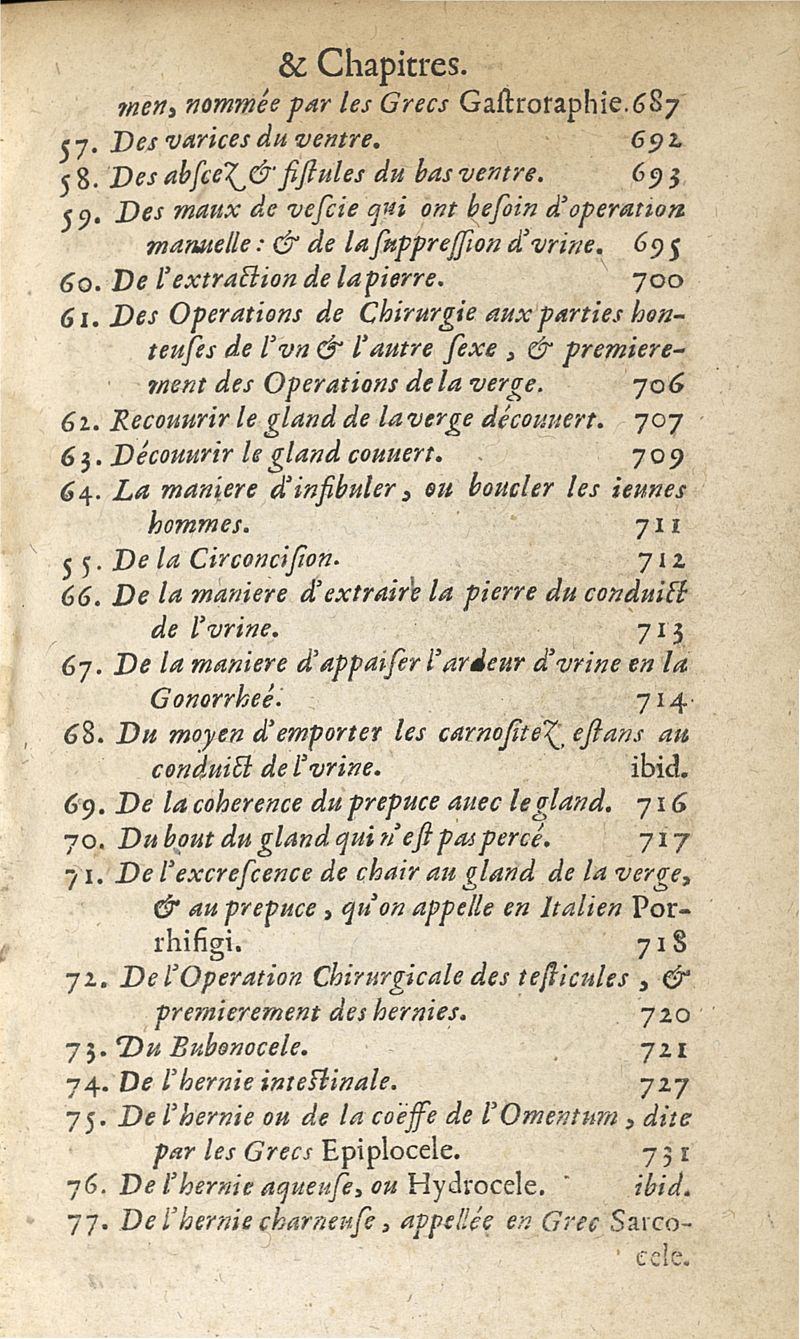 & Chapitres.
men, nommée par les Grecs Gaſtroraphie. 687
57. Des varices du ventre. 692
58. Des abſcez & fiſtules du bas ventre. 693
59. Des maux de veſcie qui ont beſoin d'operation
manuelle : & de la ſuppreſſion d'vrine. 695
60. De l'extraction de la pierre. 700
61. Des Operations de Chirurgie aux parties hon-
teuſes de l'vn & l'autre ſexe , & premiere-
ment des Operations de la verge. 706
62. Recouurir le gland de la verge découuert. 707
63. Découurir le gland couuert. 709
64. La maniere d'infibuler, ou boucler les ieunes
hommes. 711
55. De la Circonciſion. 712
66. De la maniere d'extraire la pierre du conduict
de l'vrine. 713
67. De la maniere d'appaiſer l'ardeur d'vrine en la
Gonorrheé. 714
68. Du moyen d'emporter les carnoſitez eſtans au
conduict de l'vrine. ibid.
69. De la coherence du prepuce auec le gland. 716
70. Du bout du gland qui n'eſt pas percé. 717
71. De l'excreſcence de chair au gland de la verge,
& au prepuce , qu'on appelle en Italien Por-
rhifigi. 718
72. De l'Operation Chirurgicale des teſticules , &
premierement des hernies. 720
73. Du Bubonocele. 721
74. De l'hernie inteſtinale. 727
75. De l'hernie ou de la coëffe de l'Omentum , dite
par les Grecs Epiplocele. 731
76. De l'hernie aqueuſe, ou Hydrocele. ibid.
77. De l'hernie charneuſe , appellée en Grec Sarco-
cele.